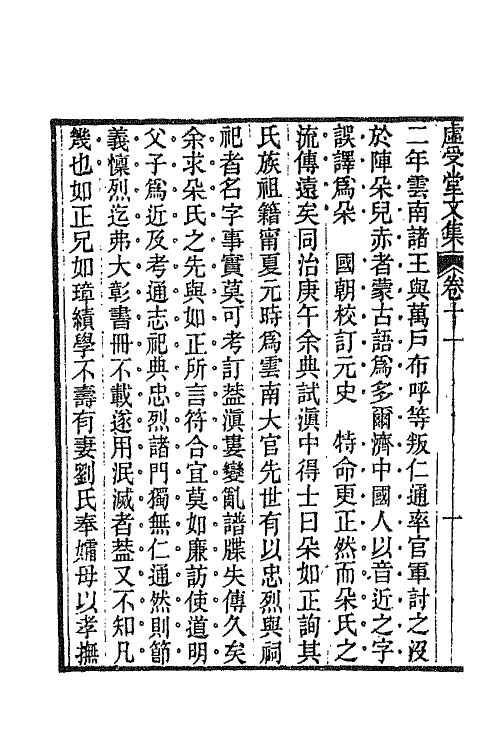 虛受堂文集 卷十一 一
二年雲南諸王與萬戶布呼等叛仁通率官軍討之沒
於陣朵兒赤者蒙古語爲多爾濟中國人以音近之字
誤譯爲朵 國朝校訂元史 特命更正然而朵氏之
流傳遠矣同治庚午余典試滇中得士曰朵如正詢其
氏族祖籍甯夏元時爲雲南大官先世有以忠烈與祠
祀者名字事實莫可考訂葢滇婁變亂譜牒失傳久矣
余求朵氏之先與如正所言符合宜莫如廉訪使道明
父子爲近及考通志祀典忠烈諸門獨無仁通然則節
義懍烈迄弗大彰書冊不載遂用泯滅者葢又不知凡
幾也如正兄如璋績學不壽有妻劉氏奉孀母以孝撫